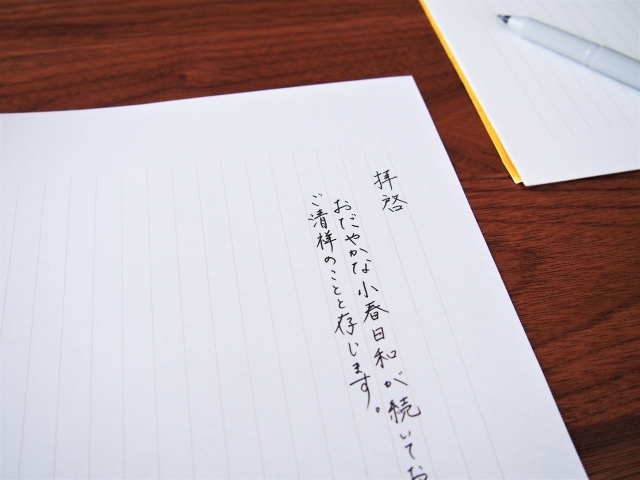 拝啓
おだやかな小春日和が続いてお
ご清様のことと存じます。